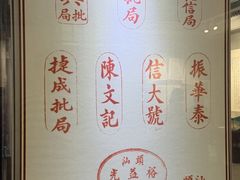 批局
信局
振華泰
信大號
陳文記
捷成批局
汕頭
光益裕